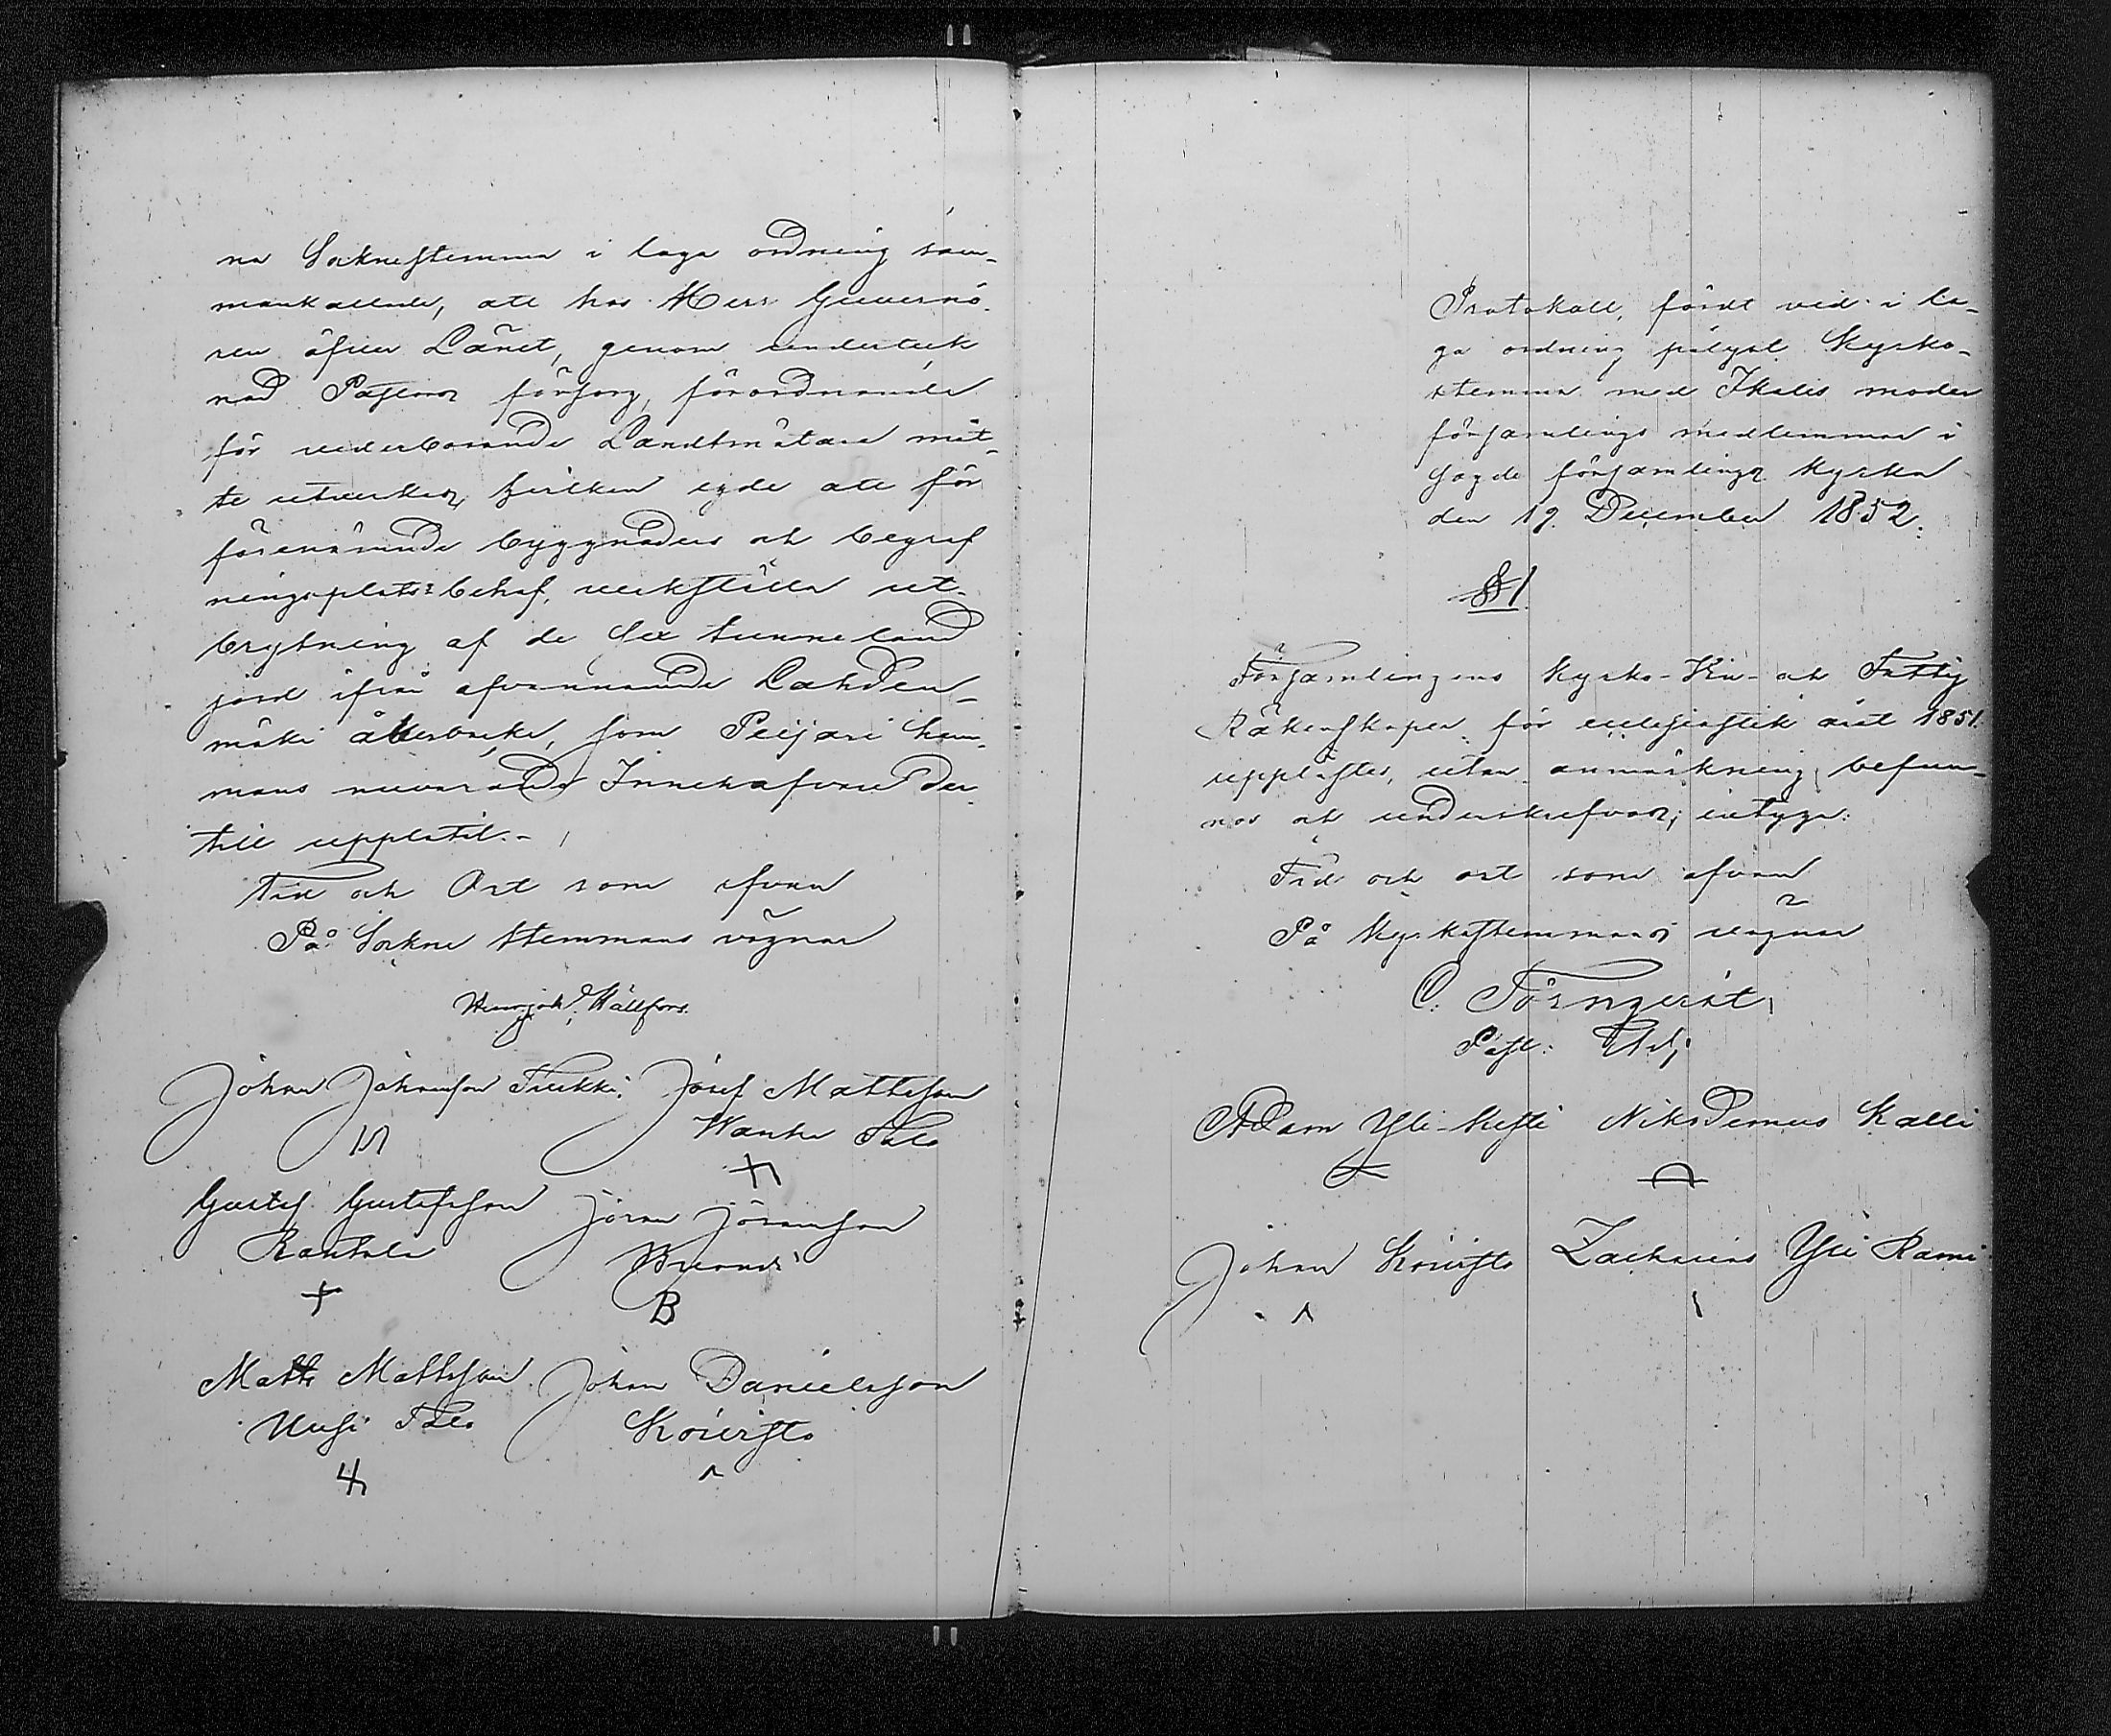 na Socknestemma i laga ordning sam-
mankallade, att hos Herr Guvernö-
ren öfver Länet, genom underteck
nad Pastors försorg, förordnande
för vederbörande Landtmätare måt-
te utverkas, hvilken egde att för
förenämnde byggnaders och begraf
ningsplats: behof, verkställa ut-
brytning af de Sex tunneland
jord ifrån ofvannämnde Lahden-
mäki åkerbacke, som Peijari hem-
mans nuvarande Innehafvare der-
till upplåtit.-
Tid och Ort som ofvan
På Sockne stemmans vägnar
Henr. Joh. Hällfors.
Johan Johansson Turkki. Josef Mattsson
Wanha Talo
Gustaf Gustafsson Jöran Jöransson
Rantala
B
Matts Mattsson Johan Danielsson
Uusi Talo Koivisto
Protokoll, fördt vid i la-
ga ordning pålyst Kyrko-
stemma med Ikalis moder
församlings medlemmar i
sagde församlings kyrka
den 19 December 1852.
§ 1
Församlingens Kyrko- och Fattig
Räkenskaper för ecclesiastik året 1851.
upplästes, utan anmärkning, befun-
nos och underskrefvos; intyga:
Tid och ort som ofvan
På Kyrkostemmans vägnar
C. Törnqvist,
Past: Adj:
Adam Yli-Kesti Nikodemus Kalli
Johan Koivisto Zacharias Yli Rami